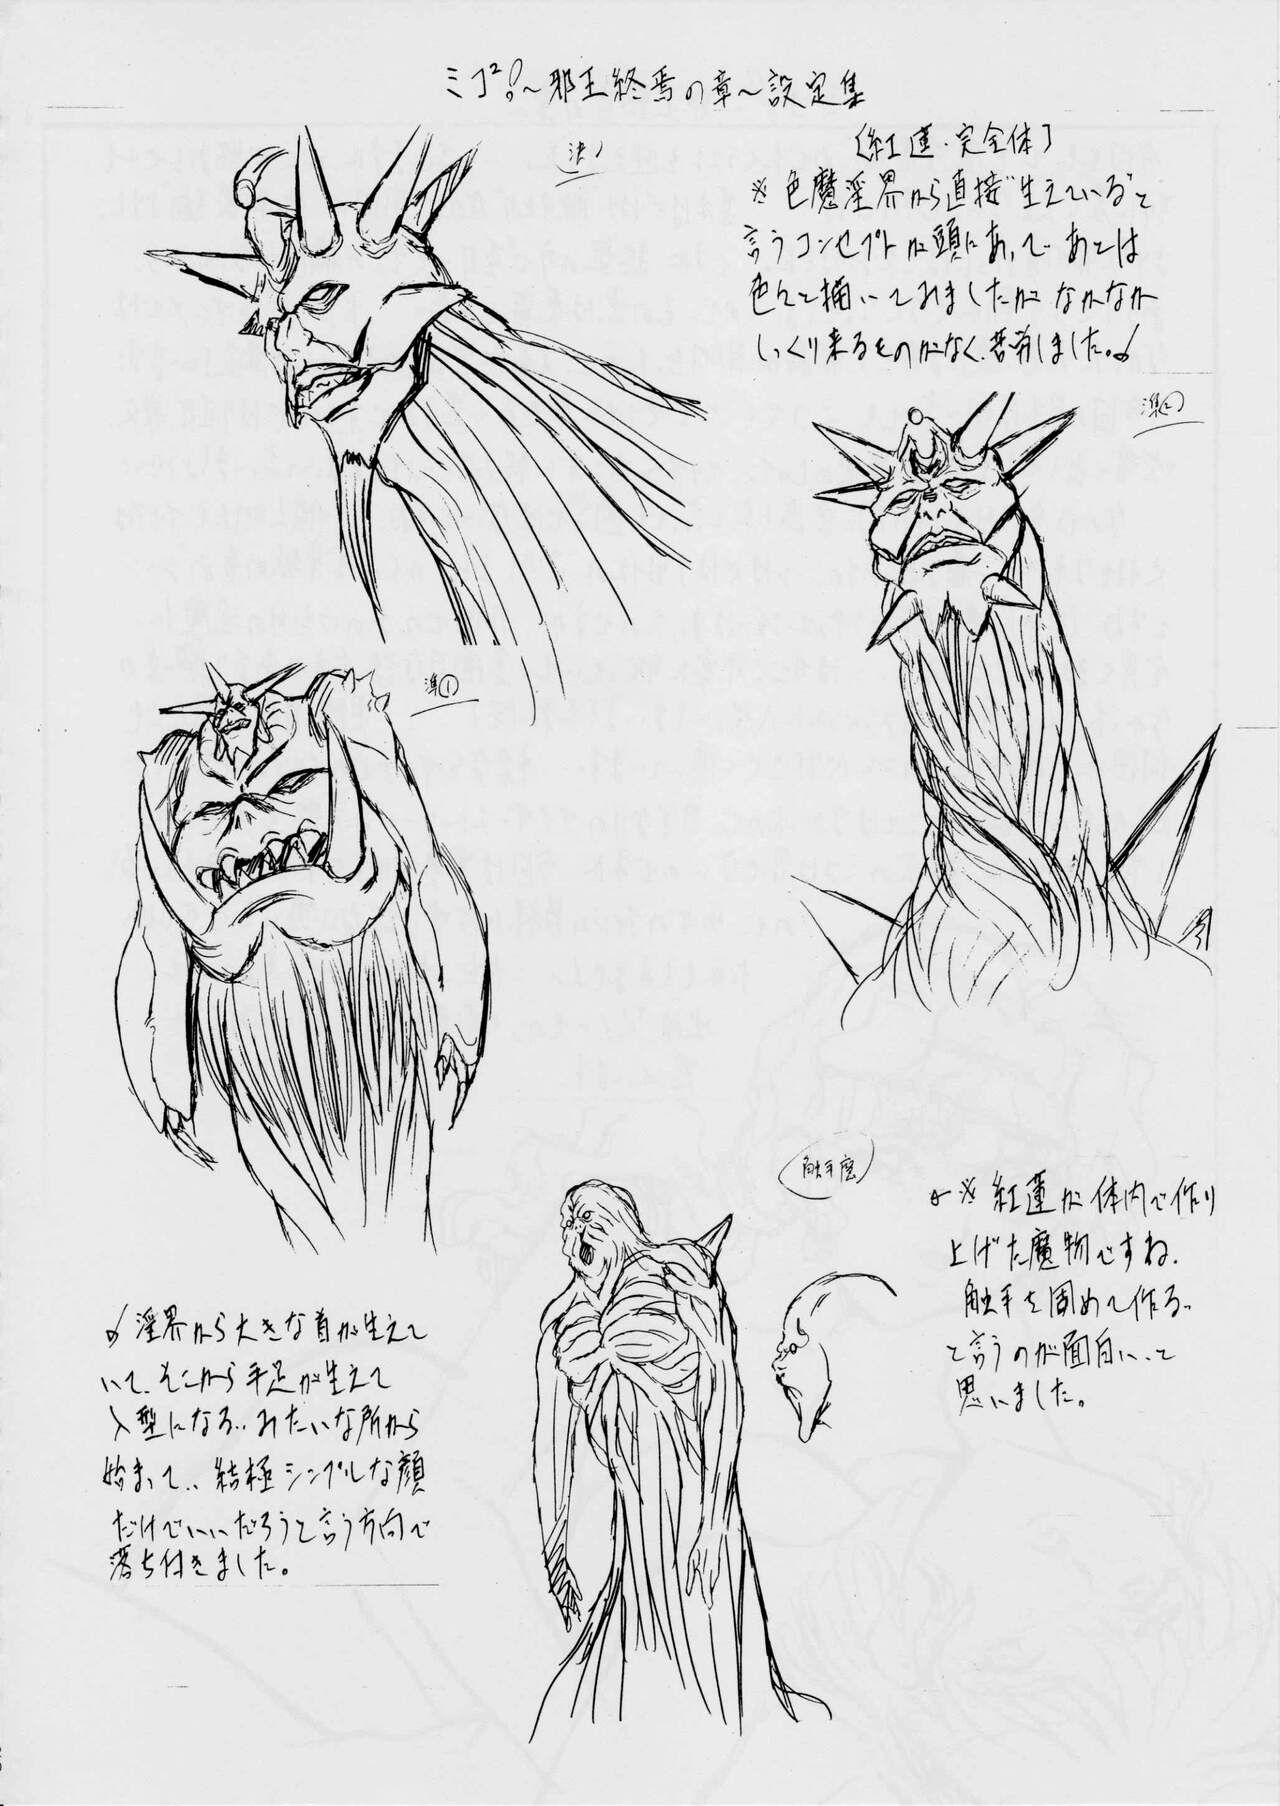 ミコ²!～邪王終焉の章～設定集
決!
[紅蓮・完全体]
※色魔淫界から直接"生えている"と
言うコンセプトが頭にあって、あとは
色んと描いておましたが なかなか
しっくり来るものがなく、苦労しました。
準②
準①
触手魔
※紅蓮が体内で作り
上げた魔物ですね、
触手を固めて作る、
と言うのが面白い、と
思いました。
淫界から大きな首が生えて
いて、そこから手足が生えて
人型になる、みたいな所から
始まって、結極シンプルな顔
だけでいいだろうと言う方向で
落ち付きました。